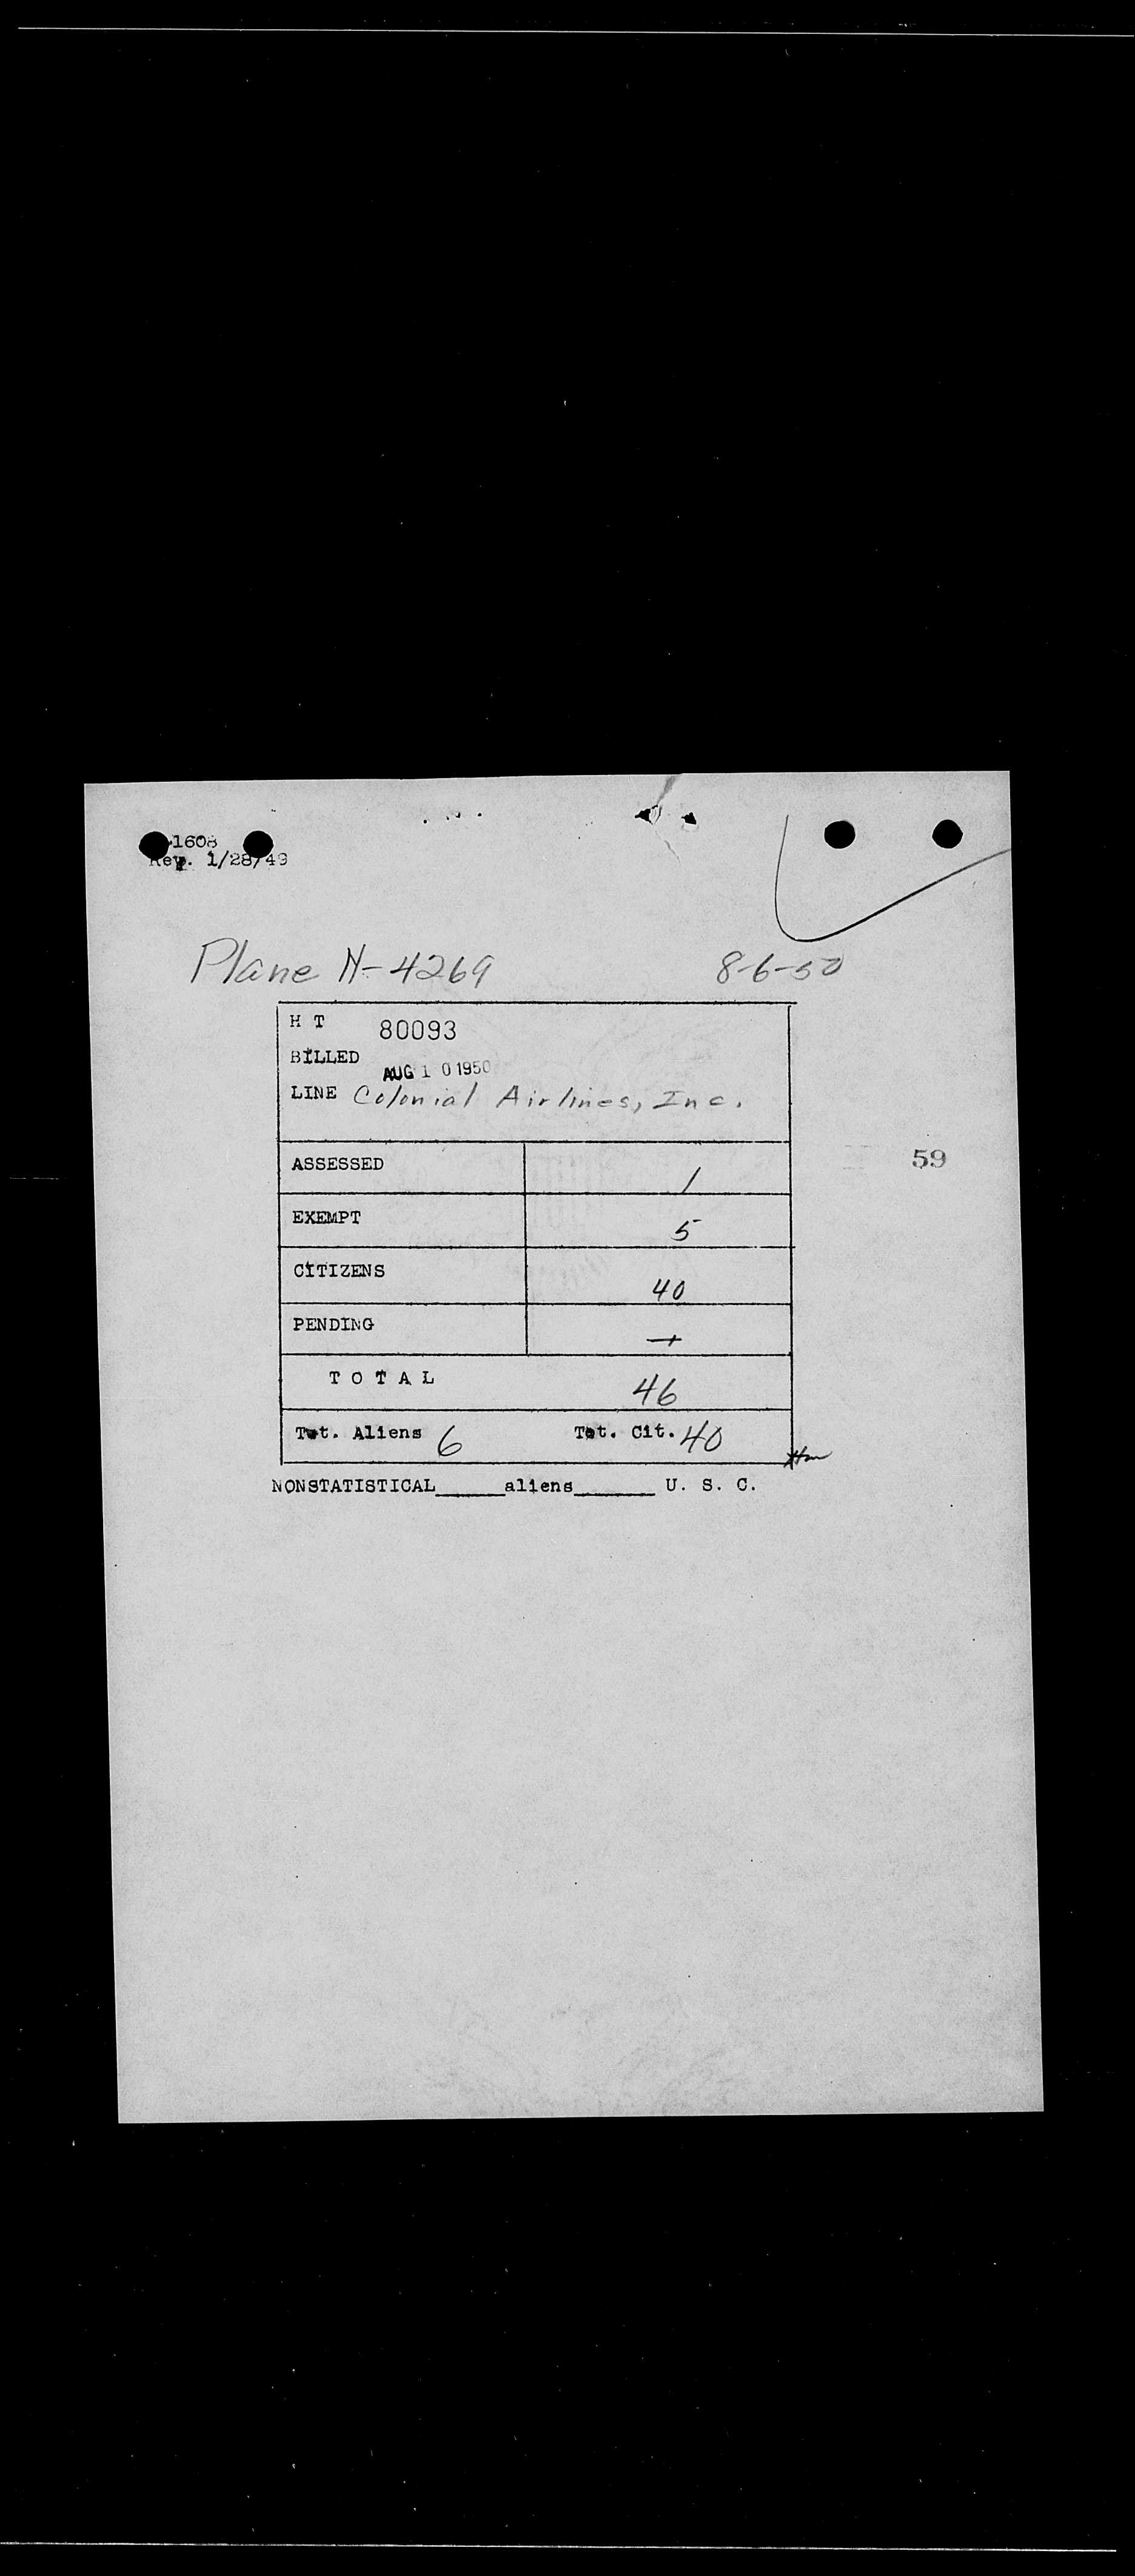 1608
Rev. 1/28/49
Plane N-4269 8-6-50
H T 80093
BILLED AUG 10 1950
LINE Colonial Airlines, Inc.
59
ASSESSED 1
EXEMPT 5
CITIZENS 40
PENDING —
T O T A L 46
Tot. Aliens 6 Tot. Cit. 40
NONSTATISTICAL______aliens_______ U. S. C.